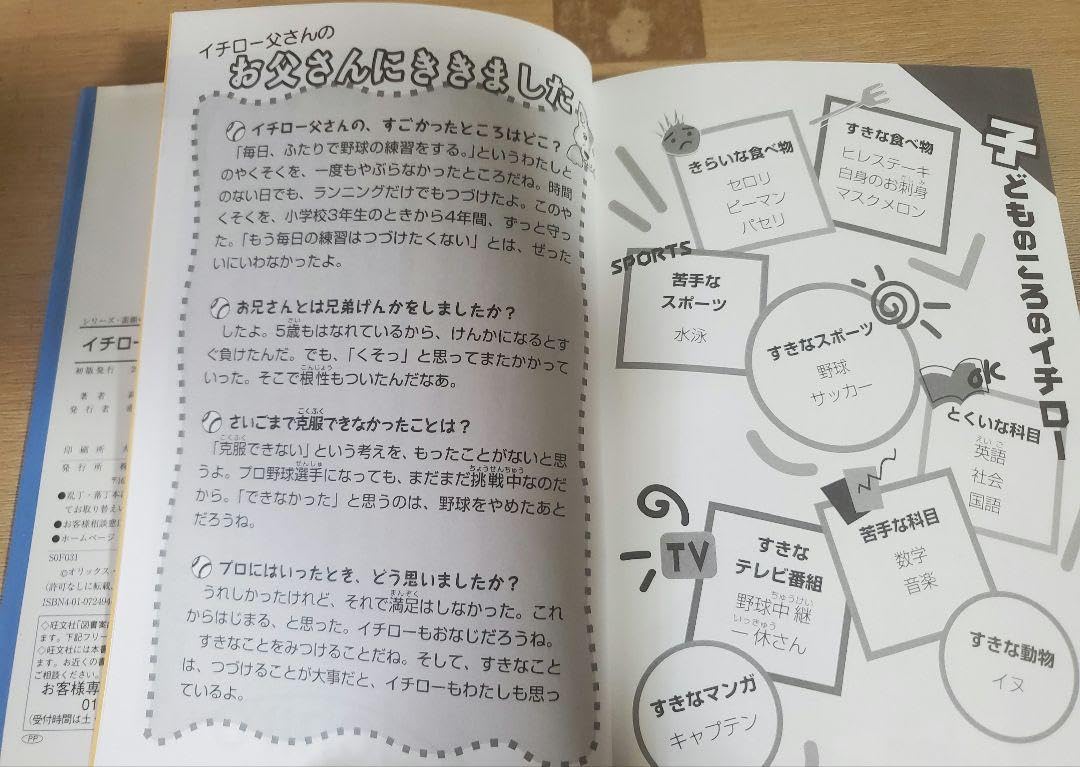 イチロー父さんの
お父さんにききました
イチロー父さんの、すごかったところはどこ?
「毎日、ふたりで野球の練習をする。」というわたしと
のやくそくを、一度もやぶらなかったところだね。時間
のない日でも、ランニングだけでもつづけたよ。このや
くそくを、小学校3年生のときから4年間、ずっと守っ
た。「もう毎日の練習はつづけたくない」とは、ぜった
いにいわなかったよ。
お兄さんとは兄弟げんかをしましたか?
したよ。5歳もはなれているから、けんかになるとす
ぐ負けたんだ。でも、「くそっ」と思ってまたかかって
いった。そこで根性もついたんだなあ。
さいごまで克服できなかったことは?
「克服できない」という考えを、もったことがないと思
うよ。プロ野球選手になっても、まだまだ挑戦中なのだ
から。「できなかった」と思うのは、野球をやめたあと
だろうね。
プロにはいったとき、どう思いましたか?
うれしかったけれど、それで満足はしなかった。これ
からはじまる、と思った。イチローもおなじだろうね。
すきなことをみつけることだね。そして、すきなこと
は、つづけることが大事だと、イチローもわたしも思っ
ているよ。
子どものころのイチロー
すきな食べ物
ヒレステーキ
白身のお刺身
マスクメロン
きらいな食べ物
セロリ
ピーマン
パセリ
SPORTS
苦手な
スポーツ
水泳
すきなスポーツ
野球
サッカー
OK
とくいな科目
英語
社会
国語
苦手な科目
数学
音楽
TV
すきな
テレビ番組
野球中継
一休さん
すきな動物
イヌ
すきなマンガ
キャプテン
シリーズ・素顔
イチロー
初版発行 2
著者
発行者
印刷所 大
発行所 株
●乱丁・落丁本は
てお取り替えい
●お客様相談窓口
●ホームページ
S0F031
©オリックス・
(許可なしに転載、
ISBN4-01-072494
◇旺文社「図書案内
ます。下記フリー
◇旺文社には本書
ます。お近くの書
ご相談ください。
お客様専
01
(受付時間は土・
PP